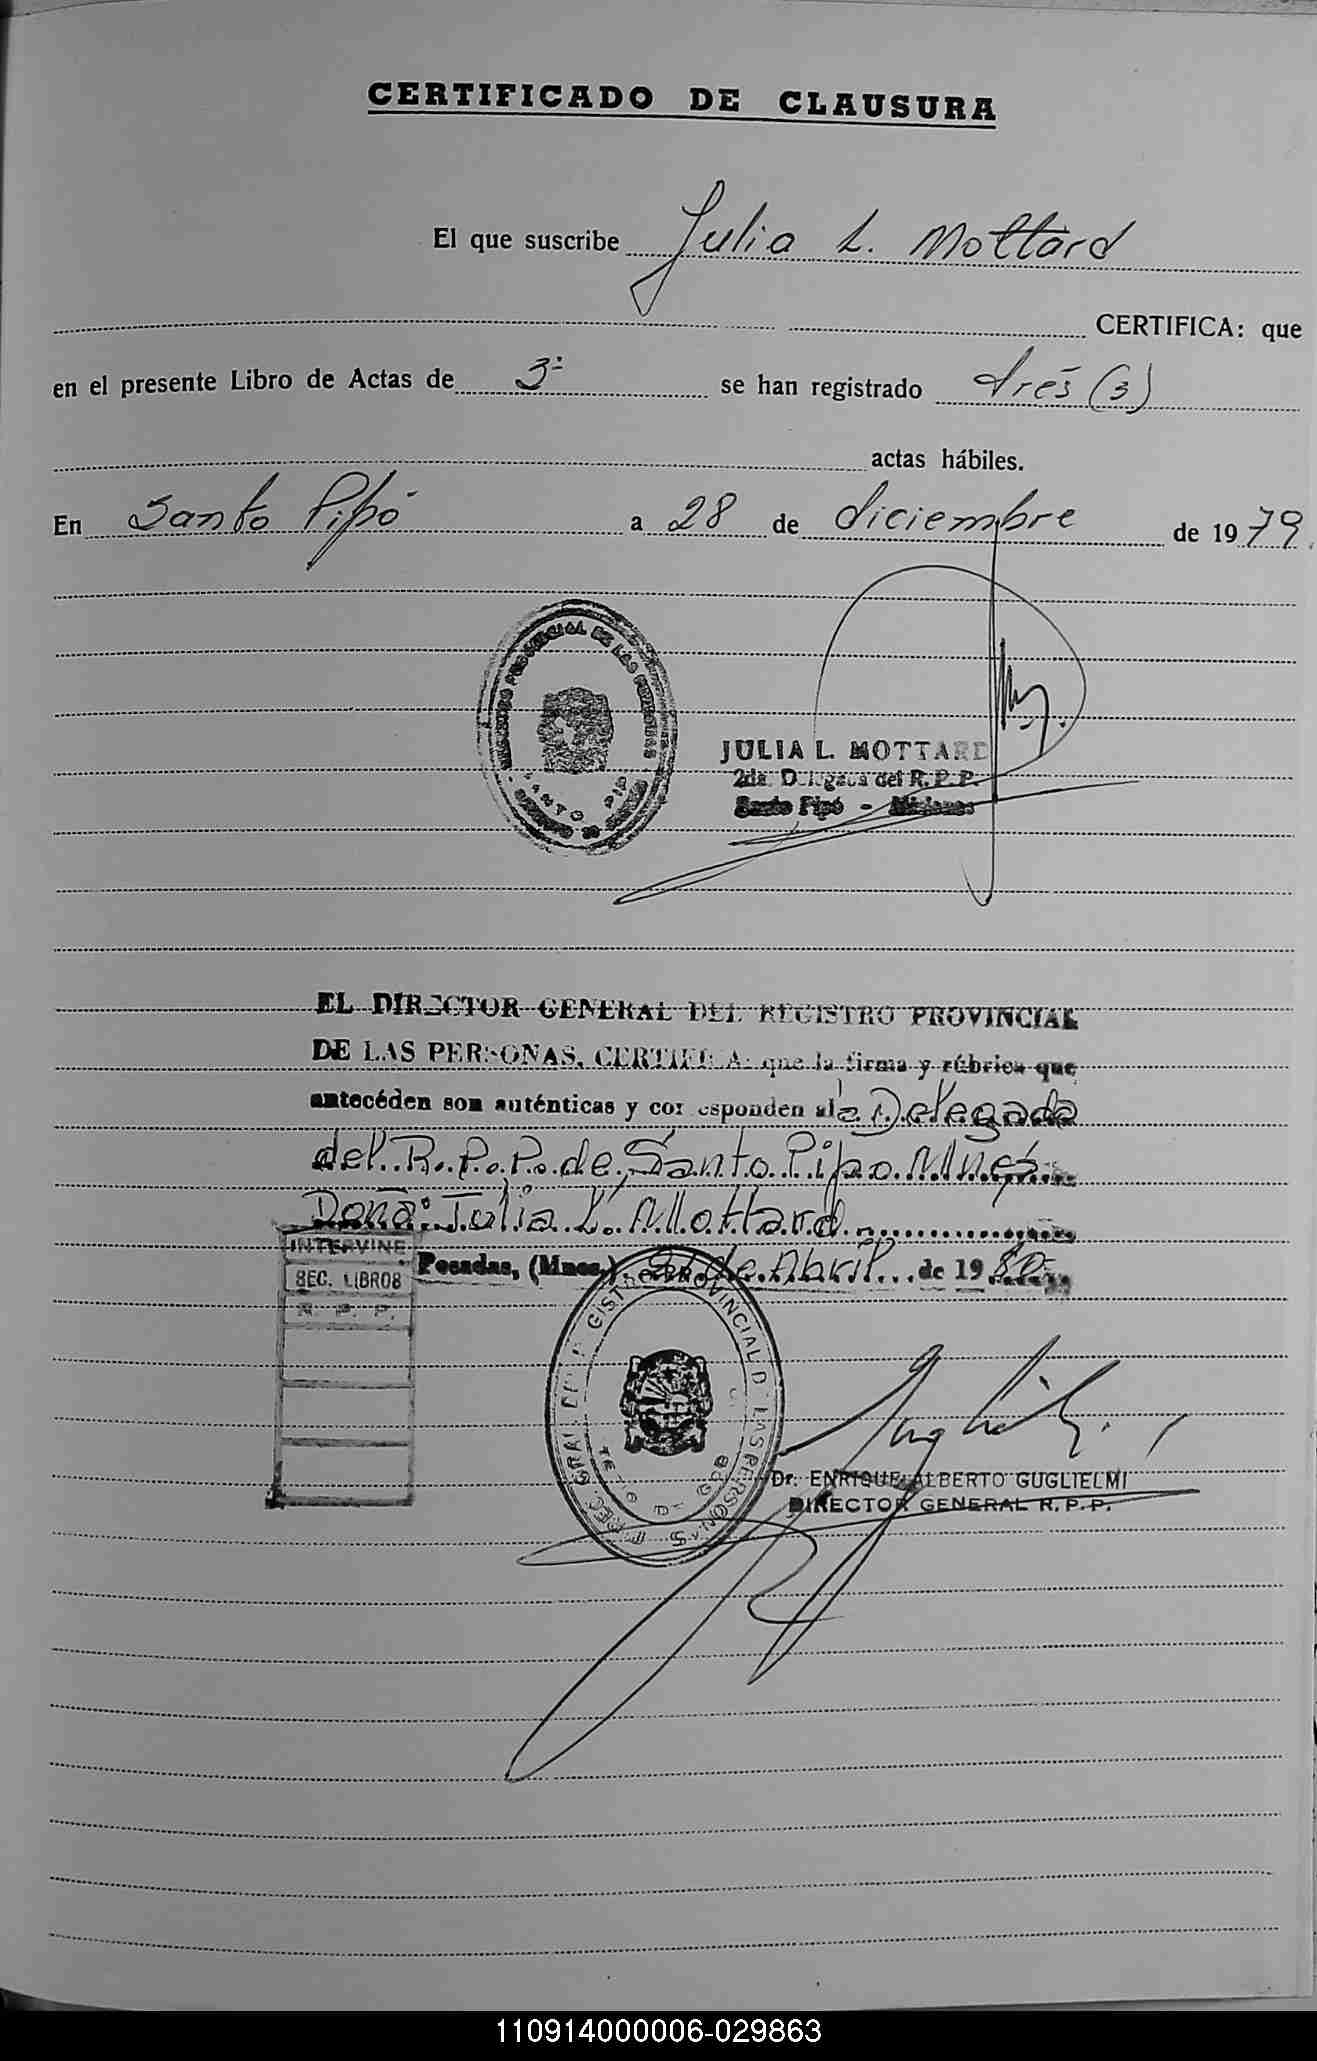 CERTIFICADO DE CLAUSURA
El que suscribe Julia L. Mottard
CERTIFICA: que
en el presente Libro de Actas de 3ª se han registrado tres (3)
actas hábiles.
En Santo Pipó a 28 de diciembre de 1979.
REGISTRO PROVINCIAL DE LAS PERSONAS
SANTO PIPO
JULIA L. MOTTARD
2da. Delegada del R. P. P.
Santo Pipó - Misiones
EL DIRECTOR GENERAL DEL REGISTRO PROVINCIAL
DE LAS PERSONAS, CERTIFICA: que la firma y rúbrica que
antecéden son auténticas y corresponden al a Delegada
del R. P. P. de Santo Pipo Mnes
Doña: Julia L. Mottard
INTERVINE
SEC. LIBROS
R. P. P.
Posadas, (Mnes.) de Abril de 1980
PROVINCIAL DE LAS PERSONAS
Dr. ENRIQUE ALBERTO GUGLIELMI
DIRECTOR GENERAL R. P. P.
110914000006-029863